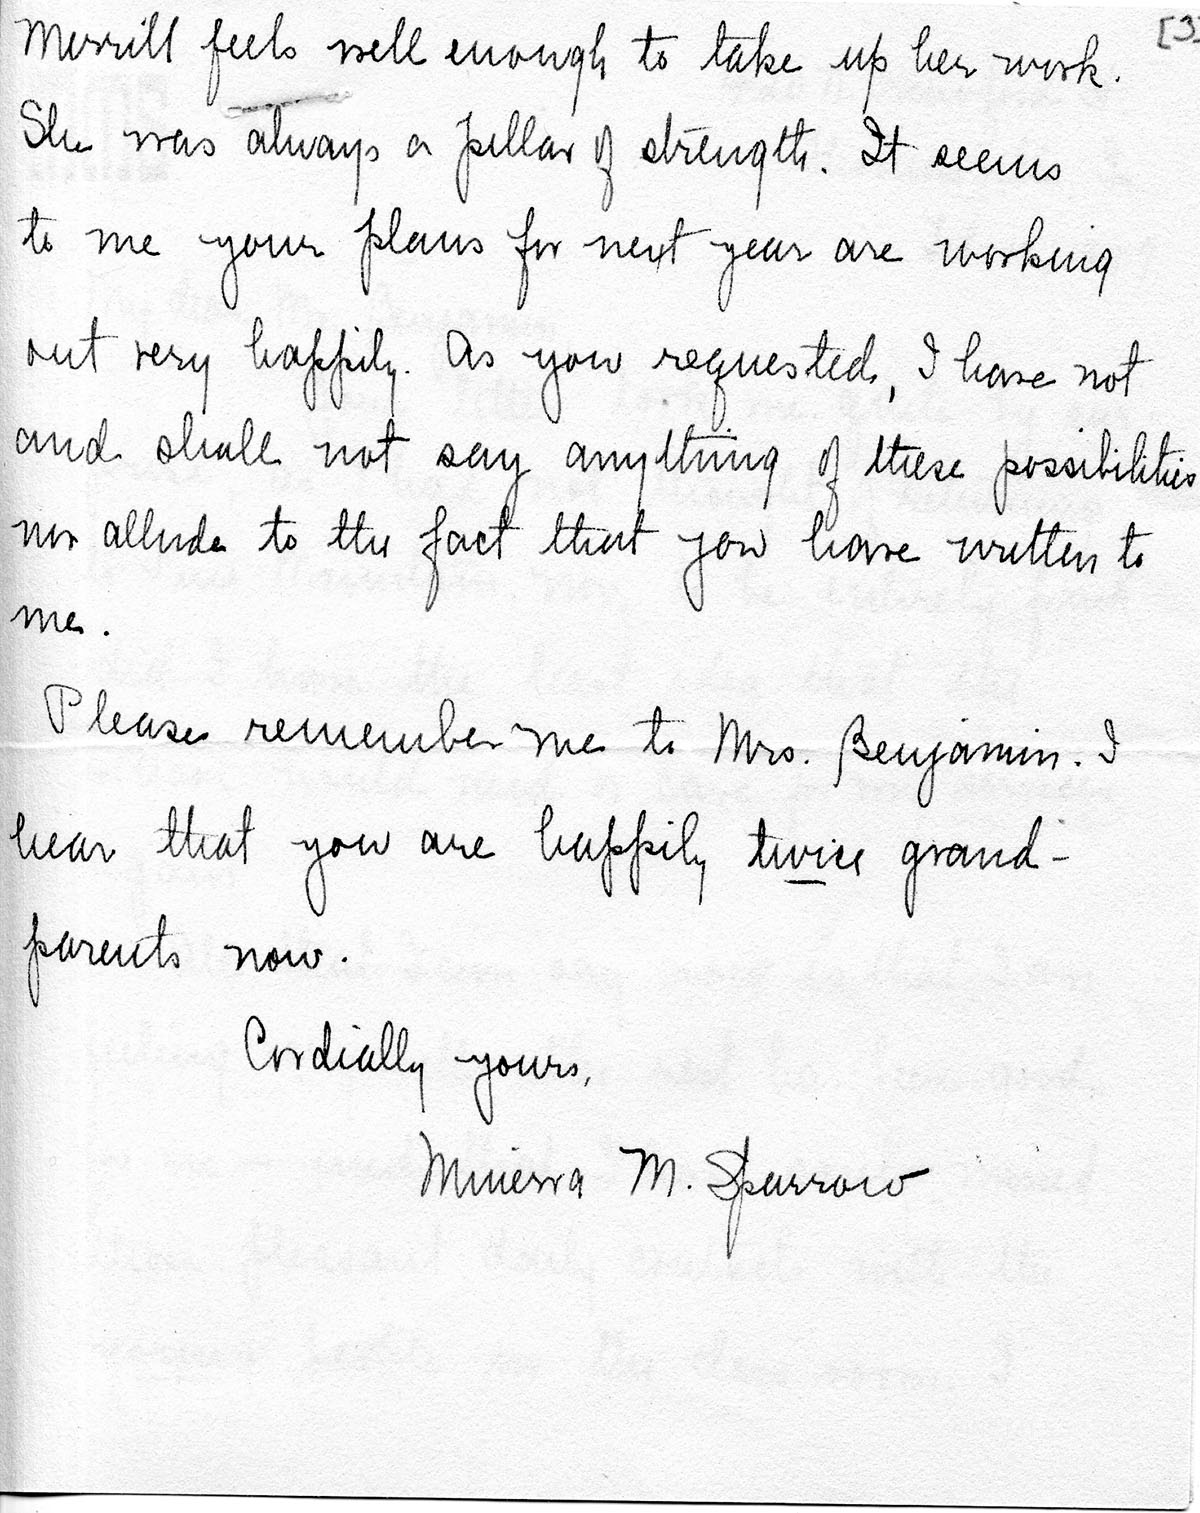 [3]
Merrill feels well enough to take up her work.
She was always a pillar of strength. It seems
to me your plans for next year are working
out very happily. As you requested, I have not
and shall not say anything of these possibilities
nor allude to the fact that you have written to
me.
Please remember me to Mrs. Benjamin. I
hear that you are happily twice grand-
parents now.
Cordially yours,
Minerva M. Sparrow